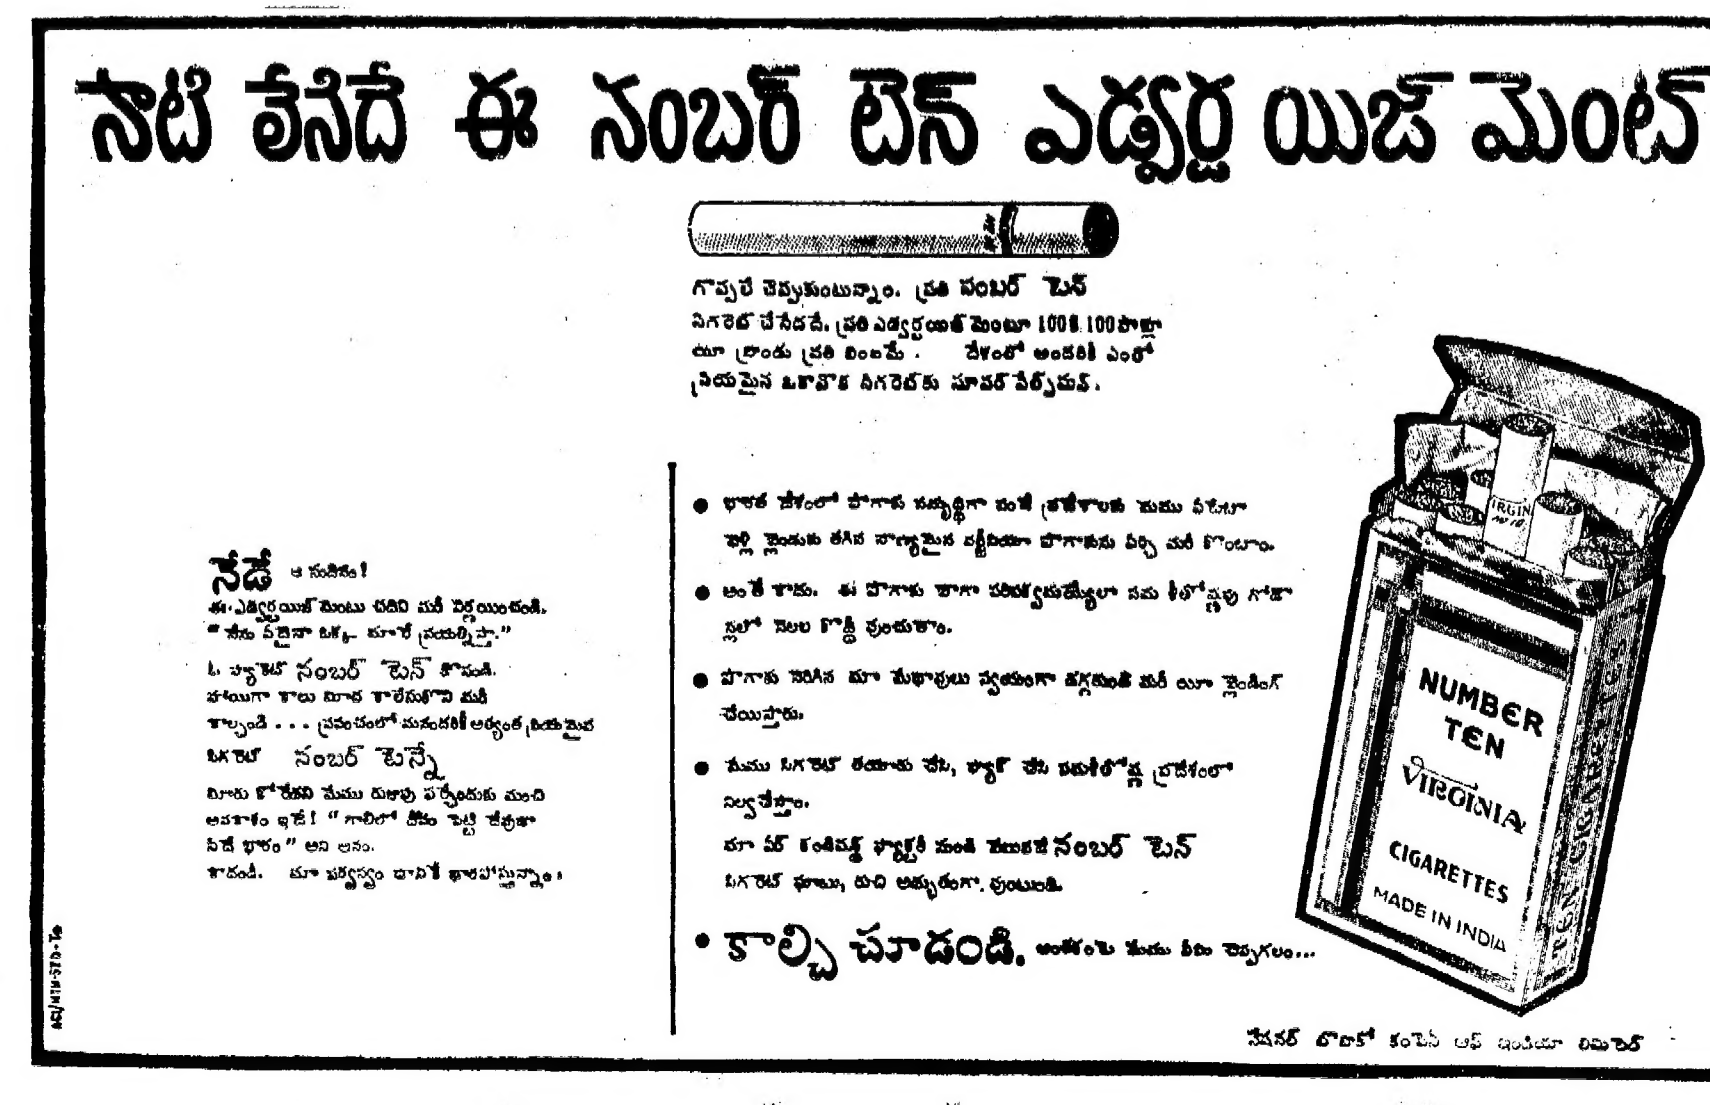 సాటి లేనిదే ఈ నంబర్ టెన్ ఎడ్వర్టయిజ్‌మెంట్
గొప్పలే చెప్పుకుంటున్నాం. ప్రతి నంబర్ టెన్
సిగరెట్ చేసేదదే. ప్రతి ఎడ్వర్టయిజ్‌మెంటూ 100కి 100పాళ్లూ
యీ బ్రాండు ప్రతి బింబమే. దేశంలో అందరికీ ఎంతో
ప్రియమైన ఒకానొక సిగరెట్‌కు సూపర్ సేల్స్‌మన్.
నేడే ఆ సుదినం!
ఈ ఎడ్వర్టయిజ్‌మెంటు చదివి మరీ నిర్ణయించండి.
"నేను ఏదైనా ఒక్క మారే ప్రయత్నిస్తా."
ఓ ప్యాకెట్ నంబర్ టెన్ కొనండి.
హాయిగా కాలు మీద కాలేసుకొని మరీ
కాల్చండి... ప్రపంచంలో మనందరికీ అత్యంత ప్రియమైన
సిగరెట్ నంబర్ టెన్నే
మీరు కోరేదని మేము రుజువు పర్చేందుకు మంచి
అవకాశం ఇదే! "గాలిలో దీపం పెట్టి దేవుడా
నీదే భారం" అని అనం.
కాదండీ. మా సర్వస్వం దానికే ధారపోస్తున్నాం!
● భారత దేశంలో పొగాకు సమృద్ధిగా పండే ప్రదేశాలకు మేము ఏటేటా
వెళ్లి బ్లెండుకు తగిన నాణ్యమైన వర్జీనియా పొగాకును ఏర్చి మరీ కొంటాం.
● అంతే కాదు. ఈ పొగాకు బాగా పరిపక్వమయ్యేలా సమ శీతోష్ణపు గోడౌ
న్లలో నెలల కొద్దీ వుంచుతాం.
● పొగాకు నెరిగిన మా మేధావులు స్వయంగా దగ్గరుండి మరీ యీ బ్లెండింగ్
చేయిస్తారు.
● మేము సిగరెట్ తయారు చేసి, ప్యాక్ చేసి సమశీతోష్ణ ప్రదేశంలో
నిల్వచేస్తాం.
మా ఏర్ కండిషన్డ్ ఫ్యాక్టరీ నుండి వెలువడే నంబర్ టెన్
సిగరెట్ ఘాటు, రుచి అద్భుతంగా వుంటుంది.
● కాల్చి చూడండి. అంతకంటె మేము ఏమి చెప్పగలం...
VIRGIN
NUMBER
TEN
VIRGINIA
CIGARETTES
MADE IN INDIA
నేషనల్ టొబాకో కంపెనీ ఆఫ్ ఇండియా లిమిటెడ్